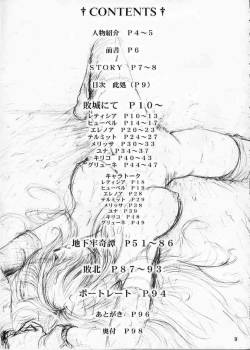 †CONTENTS†
人物紹介 P4～5
前書 P6
STORY P7～8
目次 此処(P9)
敗城にて P10～
レティシア P10～13
ヒューベル P14～19
エレノア P20～23
テルミット P24～29
メリッサ P30～33
ユナ P34～39
キリコ P40～43
グリューネ P44～47
キャラトーク
レティシア P18
ヒューベル P19
エレノア P28
テルミット P29
メリッサ P38
ユナ P39
キリコ P48
グリューネ P49
地下牢奇譚 P51～86
敗北 P87～93
ポートレート P94
あとがき P96
奥付 P98
9